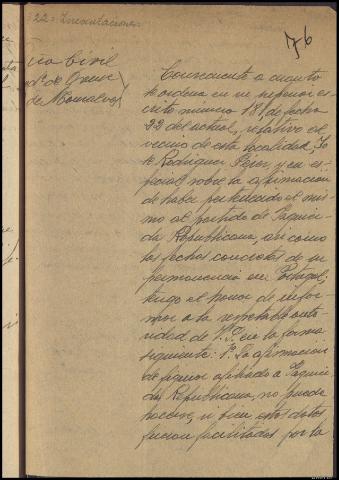 22.- Presentaciones.
76
Civil
de Orense
Consecuente a cuanto
te ordena en su superior es-
crito número 181 de fecha
22 del actual, relativo al
vecino de esta localidad, Jo
Rodriguez Perez y en es-
pecial sobre la afirmación
de haber pertenecido el mis-
mo al partido de Izquier-
da Republicana, asi como
las fechas concretas de su
permanencia en Portugal;
tengo el honor de infor-
mar a la respetable auto-
ridad de V.S. en la forma
siguiente: 1º La afirmacion
de figurar afiliado a Izquier-
da Republicana, no puede
hacerse, si bien estos datos
fueron facilitados por la